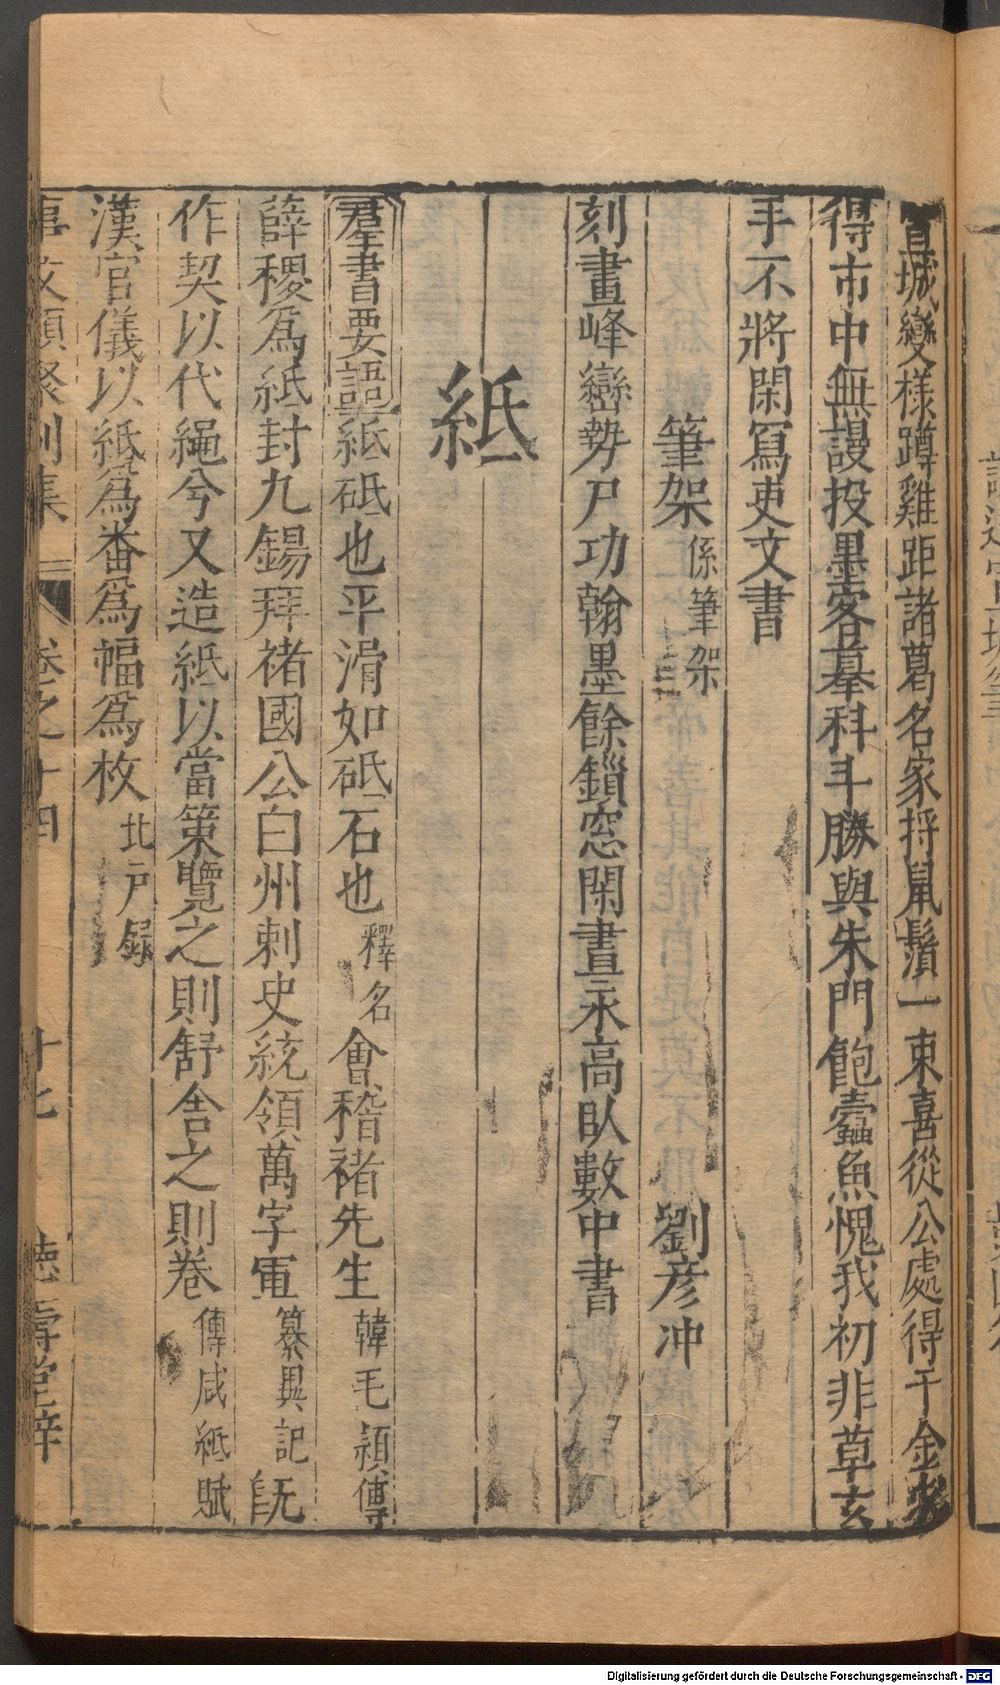 宣城變樣蹲雞距諸葛名家捋鼠鬚一束喜從公處得千金求
得市中無謾投墨客摹科斗勝與朱門飽蠧魚愧我初非草玄
手不將閑寫吏文書
筆架 係筆架 劉彦冲
刻畫峰巒勢尸功翰墨餘鎻窓閑晝永高臥數中書
紙
羣書要語紙砥也平滑如砥石也 釋名 會稽褚先生 韓毛潁傳
薛稷爲紙封九錫拜褚國公白州刺史統領萬字軍 纂異記 旣
作契以代繩兮又造紙以當策覽之則舒舍之則卷 傅咸紙賦
漢官儀以紙爲番爲幅爲枚 北戸録
事文類聚別集 卷之十四 十七 德壽堂梓
Digitalisierung gefördert durch die Deutsche Forschungsgemeinschaft - DFG